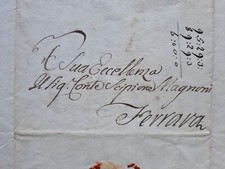 A Sua Eccellenza
Il Sig. Conte Scipione Magnoni
Ferrara